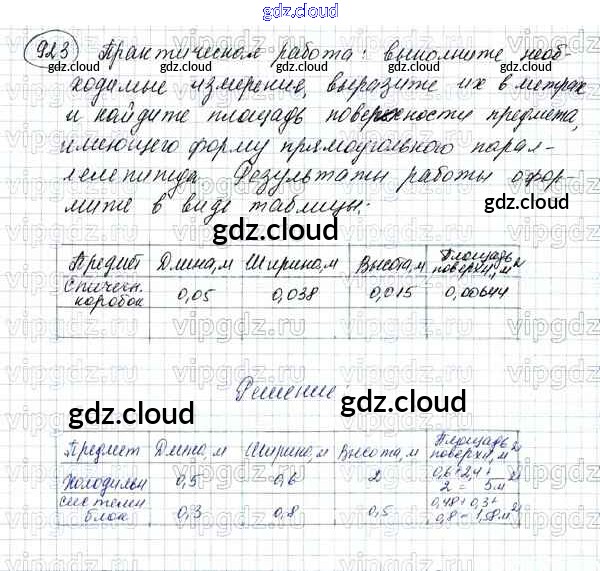 gdz.cloud
923 Практическая работа: выполните необ-
ходимые измерения, выразите их в метрах
и найдите площадь поверхности предмета,
имеющего форму прямоугольного парал-
лелепипеда. Результаты работы офор-
мите в виде таблицы:
Предмет Длина, м Ширина, м Высота, м Площадь поверхн., м²
Спичечн. коробок 0,05 0,038 0,015 0,00644
Решение:
Предмет Длина, м Ширина, м Высота, м Площадь поверхн., м²
Холодильн 0,5 0,6 2 0,6+2,4+2 = 5м²
системн блок 0,3 0,8 0,5 0,48+0,3+0,8=1,58м²